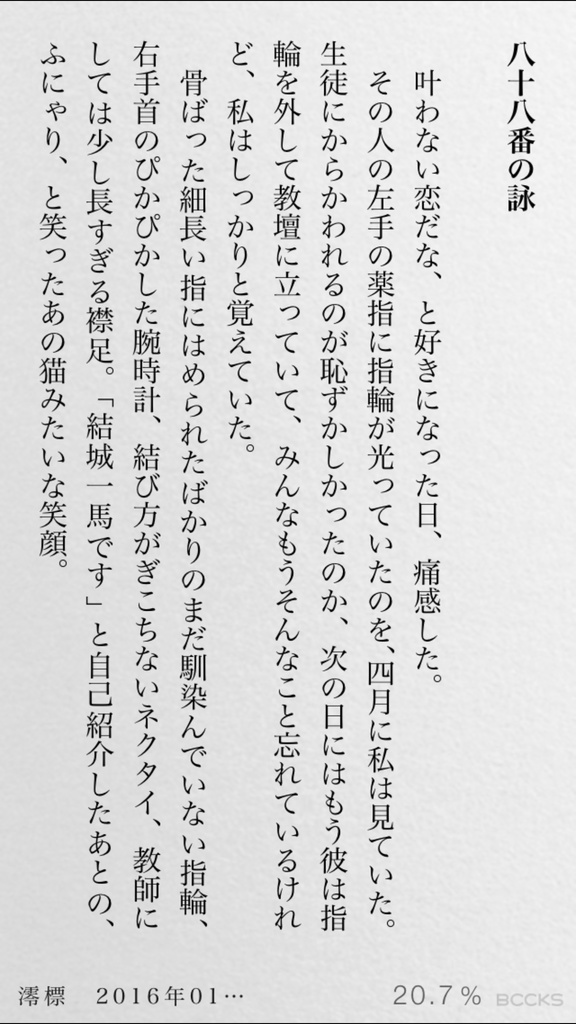 八十八番の詠
叶わない恋だな、と好きになった日、痛感した。
その人の左手の薬指に指輪が光っていたのを、四月に私は見ていた。
生徒にからかわれるのが恥ずかしかったのか、次の日にはもう彼は指
輪を外して教壇に立っていて、みんなもうそんなこと忘れているけれ
ど、私はしっかりと覚えていた。
骨ばった細長い指にはめられたばかりのまだ馴染んでいない指輪、
右手首のぴかぴかした腕時計、結び方がぎこちないネクタイ、教師に
しては少し長すぎる襟足。「結城一馬です」と自己紹介したあとの、
ふにゃり、と笑ったあの猫みたいな笑顔。
澪標 2016年01…
20.7% BCCKS